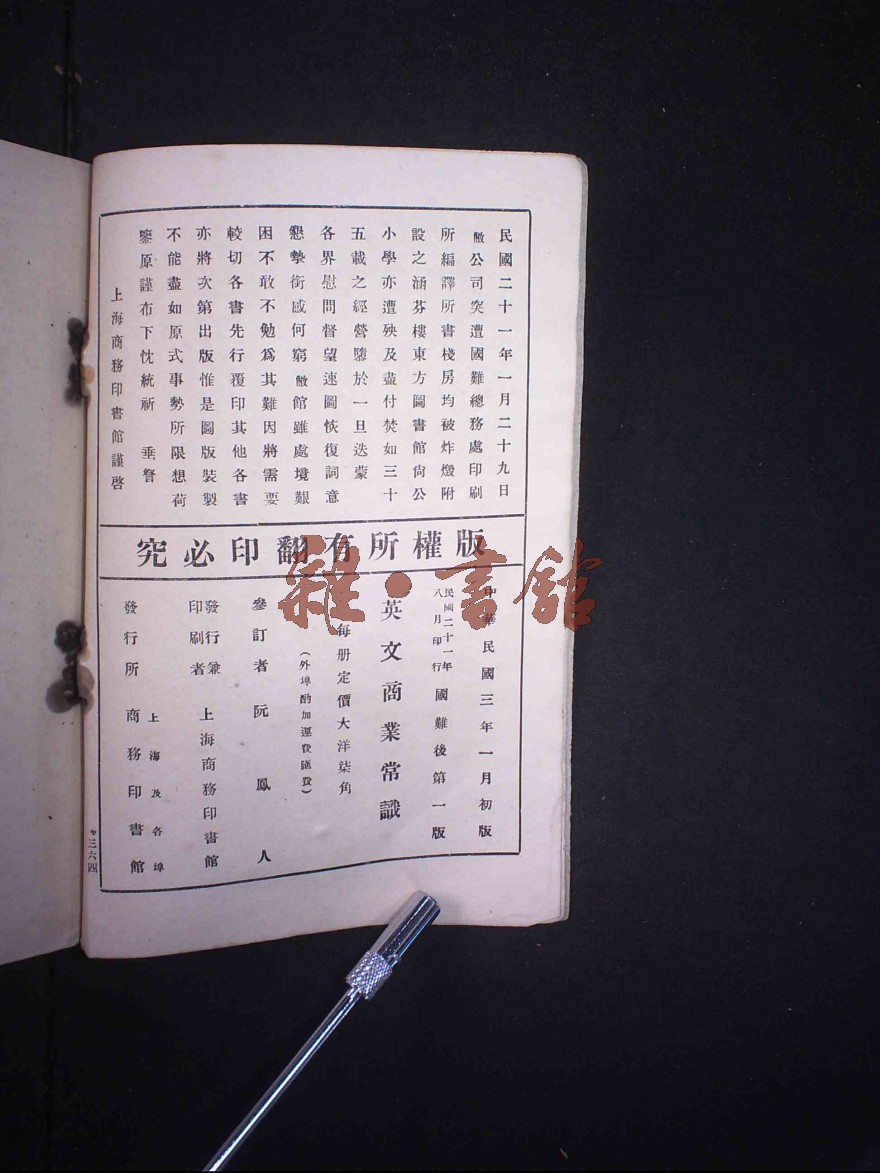 民國二十一年一月二十九日
敝公司突遭國難總務處印刷
所編譯所書棧房均被炸燬附
設之涵芬樓東方圖書館尚公
小學亦遭殃及盡付焚如三十
五載之經營隳於一旦迭蒙
各界慰問督望速圖恢復詞意
懇摯銜感何窮敝館雖處境艱
困不敢不勉爲其難因將需要
較切各書先行覆印其他各書
亦將次第出版惟是圖版裝製
不能盡如原式事勢所限想荷
鑒原謹布下忱統祈 垂詧
上海商務印書館謹啓
版權所有翻印必究
中華民國三年一月初版
民國二十一年八月印行 國難後第一版
英文商業常識
每册定價大洋柒角
(外埠酌加運費匯費)
參訂者 阮鳳人
發行兼印刷者 上海商務印書館
發行所 上海及各埠 商務印書館
三六四
雜·書館